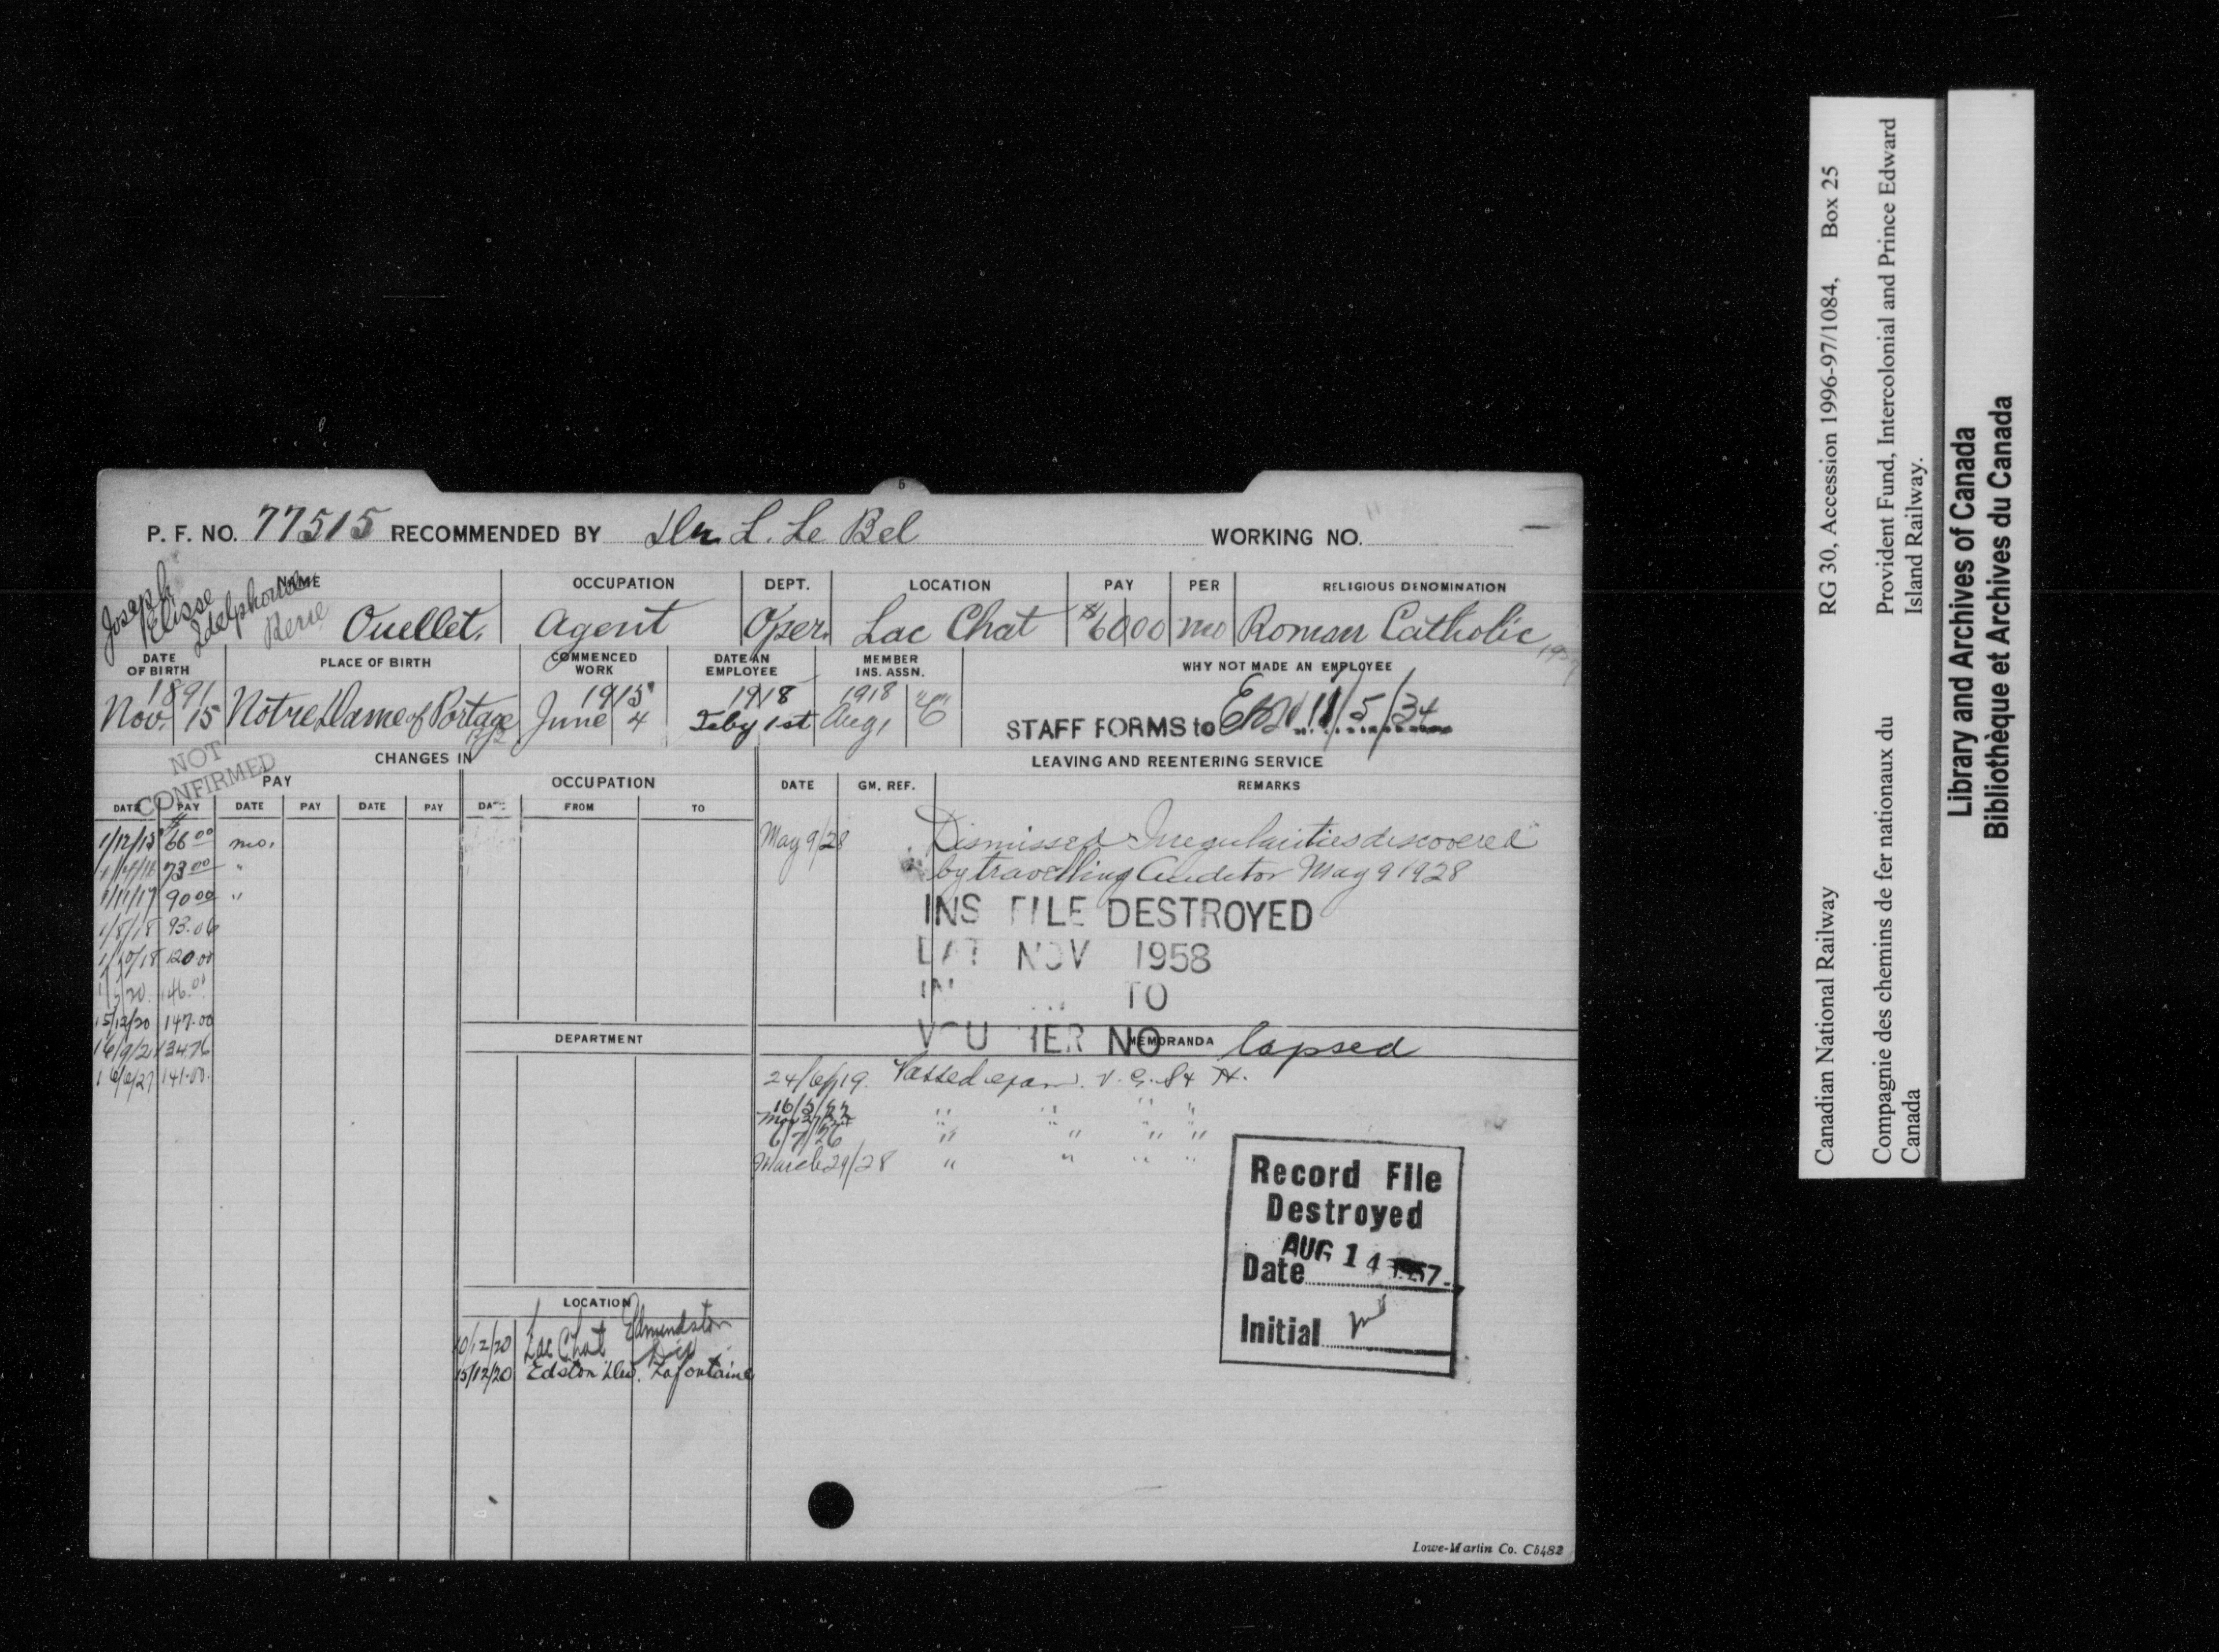 P. F. NO. 77515 RECOMMENDED BY L. Le Bel WORKING NO.
NAME OCCUPATION DEPT. LOCATION PAY PER RELIGIOUS DENOMINATION
Joseph
Elisse
Ouellet. Agent Oper. Lac Chat $60 00 mo Roman Catholic
DATE OF BIRTH PLACE OF BIRTH COMMENCED WORK DATE AN EMPLOYEE MEMBER INS. ASSN. WHY NOT MADE AN EMPLOYEE
1891 1915 1918 1918
Nov. 15 Notre Dame of Portage June 4 Feby 1st Aug 1 "C" STAFF FORMS to 11/5/34
NOT CONFIRMED
CHANGES IN LEAVING AND REENTERING SERVICE
PAY OCCUPATION DATE GM. REF. REMARKS
DATE PAY DATE PAY DATE PAY DATE FROM TO
1/12/15 $66 00 mo.
73 00 "
1/11/17 90 00 "
1/8/18 93.06
1/10/18 120 00
1/5/20 146.00
15/12/20 147.00
16/9/21 134 76
1 6/6/27 141.00
May 9/28 Dismissed Irregularities discovered
by travelling Auditor May 9 1928
INS FILE DESTROYED
NOV 1958
TO
NO
DEPARTMENT
MEMORANDA lapsed
24/6/19. Passed exam. V. C. & H.
16/5/22 " " " "
6/7/26 " " " "
March 29/28 " " " "
Record File
Destroyed
Date AUG 14
Initial
LOCATION
10/12/20 Lac Chat Edmundston Div
15/12/20 Edston Div. Lafontaine
Lowe-Martin Co. C5482
Canadian National Railway RG 30, Accession 1996-97/1084, Box 25
Compagnie des chemins de fer nationaux du Canada
Provident Fund, Intercolonial and Prince Edward Island Railway.
Library and Archives of Canada
Bibliothèque et Archives du Canada